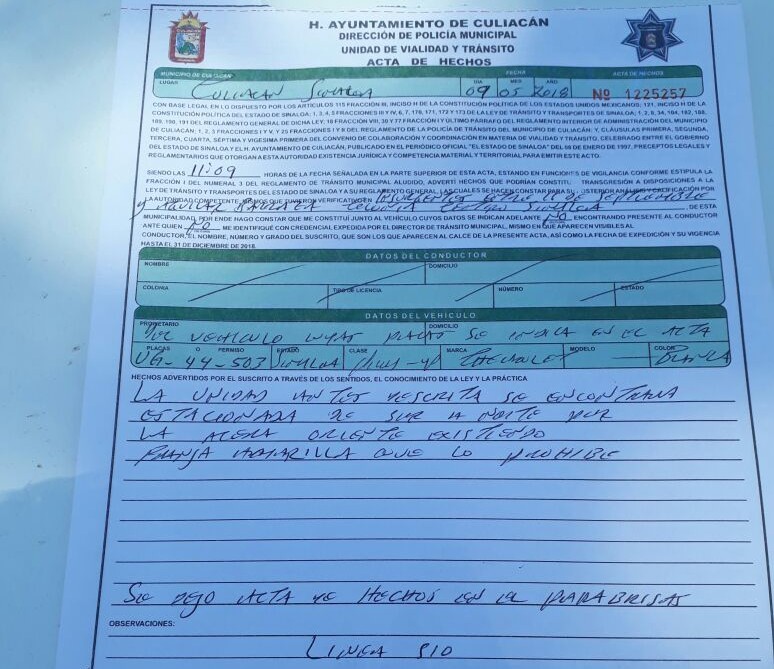 H. AYUNTAMIENTO DE CULIACÁN
DIRECCIÓN DE POLICÍA MUNICIPAL
UNIDAD DE VIALIDAD Y TRÁNSITO
ACTA DE HECHOS
MUNICIPIO DE CULIACÁN FECHA ACTA DE HECHOS
LUGAR DÍA MES AÑO
CULIACAN SINALOA 09 05 2018 Nº 1225257
CON BASE LEGAL EN LO DISPUESTO POR LOS ARTÍCULOS 115 FRACCIÓN III, INCISO H DE LA CONSTITUCIÓN POLÍTICA DE LOS ESTADOS UNIDOS MEXICANOS; 121, INCISO H DE LA
CONSTITUCIÓN POLÍTICA DEL ESTADO DE SINALOA; 1, 3, 4, 5 FRACCIONES III Y IV, 6, 7, 170, 171, 172 Y 173 DE LA LEY DE TRÁNSITO Y TRANSPORTES DE SINALOA; 1, 2, 8, 34, 184, 182, 188,
189, 190, 191 DEL REGLAMENTO GENERAL DE DICHA LEY, 10 FRACCIÓN VII, 30 Y 77 FRACCIÓN Y ÚLTIMO PÁRRAFO DEL REGLAMENTO INTERIOR DE ADMINISTRACIÓN DEL MUNICIPIO
DE CULIACÁN; 1, 2, 3 FRACCIONES I Y V, Y 25 FRACCIONES I Y II DEL REGLAMENTO DE LA POLICÍA DE TRÁNSITO DEL MUNICIPIO DE CULIACÁN, Y, CLÁUSULAS PRIMERA, SEGUNDA,
TERCERA, CUARTA, SÉPTIMA Y VIGESIMA PRIMERA DEL CONVENIO DE COLABORACIÓN Y COORDINACIÓN EN MATERIA DE VIALIDAD Y TRÁNSITO, CELEBRADO ENTRE EL GOBIERNO
DEL ESTADO DE SINALOA Y EL H. AYUNTAMIENTO DE CULIACÁN, PUBLICADO EN EL PERIÓDICO OFICIAL "EL ESTADO DE SINALOA" DEL 08 DE ENERO DE 1997, PRECEPTOS LEGALES Y
REGLAMENTARIOS QUE OTORGAN ESTA AUTORIDAD EXISTENCIA JURÍDICA Y COMPETENCIA MATERIAL Y TERRITORIAL PARA EMITIR ESTE ACTO.
SIENDO LAS 11:09 HORAS DE LA FECHA SEÑALADA EN LA PARTE SUPERIOR DE ESTA ACTA, ESTANDO EN FUNCIONES DE VIGILANCIA CONFORME ESTIPULA LA
FRACCIÓN I DEL NUMERAL 3 DEL REGLAMENTO DE TRÁNSITO MUNICIPAL ALUDIDO, ADVERTÍ HECHOS QUE PODRÍAN CONSTITUIR TRANSGRESIÓN A DISPOSICIONES DE LA
LEY DE TRÁNSITO Y TRANSPORTES DEL ESTADO DE SINALOA Y A SU REGLAMENTO GENERAL, LAS CUALES SE HACEN CONSTAR PARA SU ANÁLISIS Y CALIFICACIÓN POR
LA AUTORIDAD COMPETENTE, HECHOS QUE TUVIERON VERIFICATIVO EN
COLONIA CENTRO SINALOA, DE ESTA
MUNICIPALIDAD, POR ENDE HAGO CONSTAR QUE ME CONSTITUÍ JUNTO AL VEHÍCULO CUYOS DATOS SE INDICAN ADELANTE, NO ENCONTRANDO PRESENTE AL CONDUCTOR
ANTE QUIEN NO ME IDENTIFIQUÉ CON CREDENCIAL EXPEDIDA POR EL DIRECTOR DE TRÁNSITO MUNICIPAL, MISMO EN QUE APARECEN VISIBLES AL
CONDUCTOR, EL NOMBRE, NÚMERO Y GRADO DEL SUSCRITO, QUE SON LOS QUE APARECEN AL CALCE DE LA PRESENTE ACTA, ASÍ COMO LA FECHA DE EXPEDICIÓN Y SU VIGENCIA
HASTA EL 31 DE DICIEMBRE DE 2018.
DATOS DEL CONDUCTOR
NOMBRE DOMICILIO
COLONIA TIPO DE LICENCIA NÚMERO ESTADO
DATOS DEL VEHÍCULO
PROPIETARIO DOMICILIO
DE VEHICULO CUYAS PLACAS SE INDICA EN EL ACTA
PLACAS O PERMISO ESTADO CLASE MARCA MODELO COLOR
UG-44-503 SINALOA PICK-UP CHEVROLET BLANCA
HECHOS ADVERTIDOS POR EL SUSCRITO A TRAVÉS DE LOS SENTIDOS, EL CONOCIMIENTO DE LA LEY Y LA PRÁCTICA
LA UNIDAD ANTES DESCRITA SE ENCONTRABA
ESTACIONADA DE SUR A NORTE POR
LA ACERA ORIENTE EXISTIENDO
FRANJA AMARILLA QUE LO PROHIBE
SE DEJO ACTA DE HECHOS EN EL PARABRISAS
OBSERVACIONES:
LINEA S10